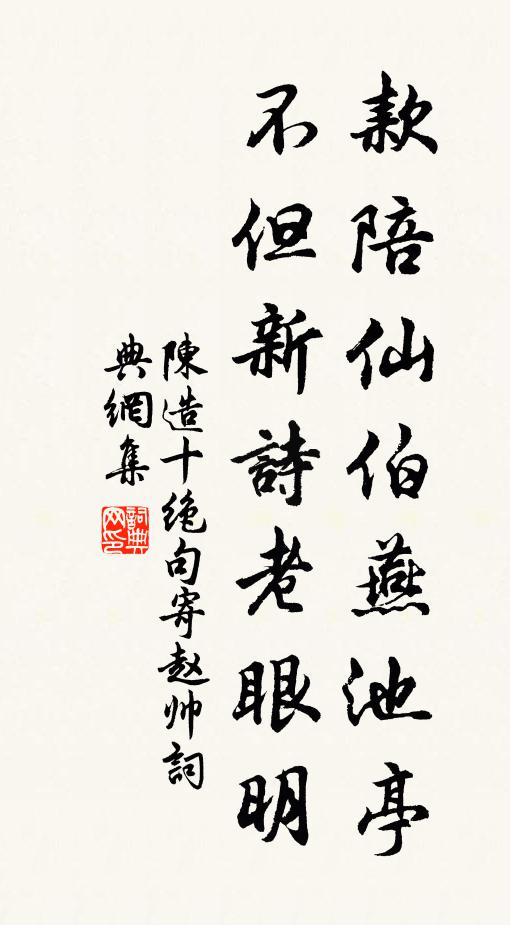 款陪仙伯燕池亭
不但新詩老眼明
陳造十绝句寄赵帅詞
典網集
詞典
网印